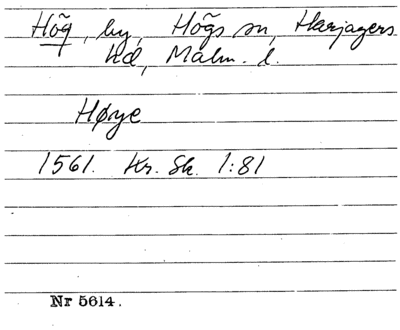 Hög, by, Högs sn, Harjagers
hd, Malm. l.
Høye
1561. Kr. Sk. 1:81
Nr 5614.